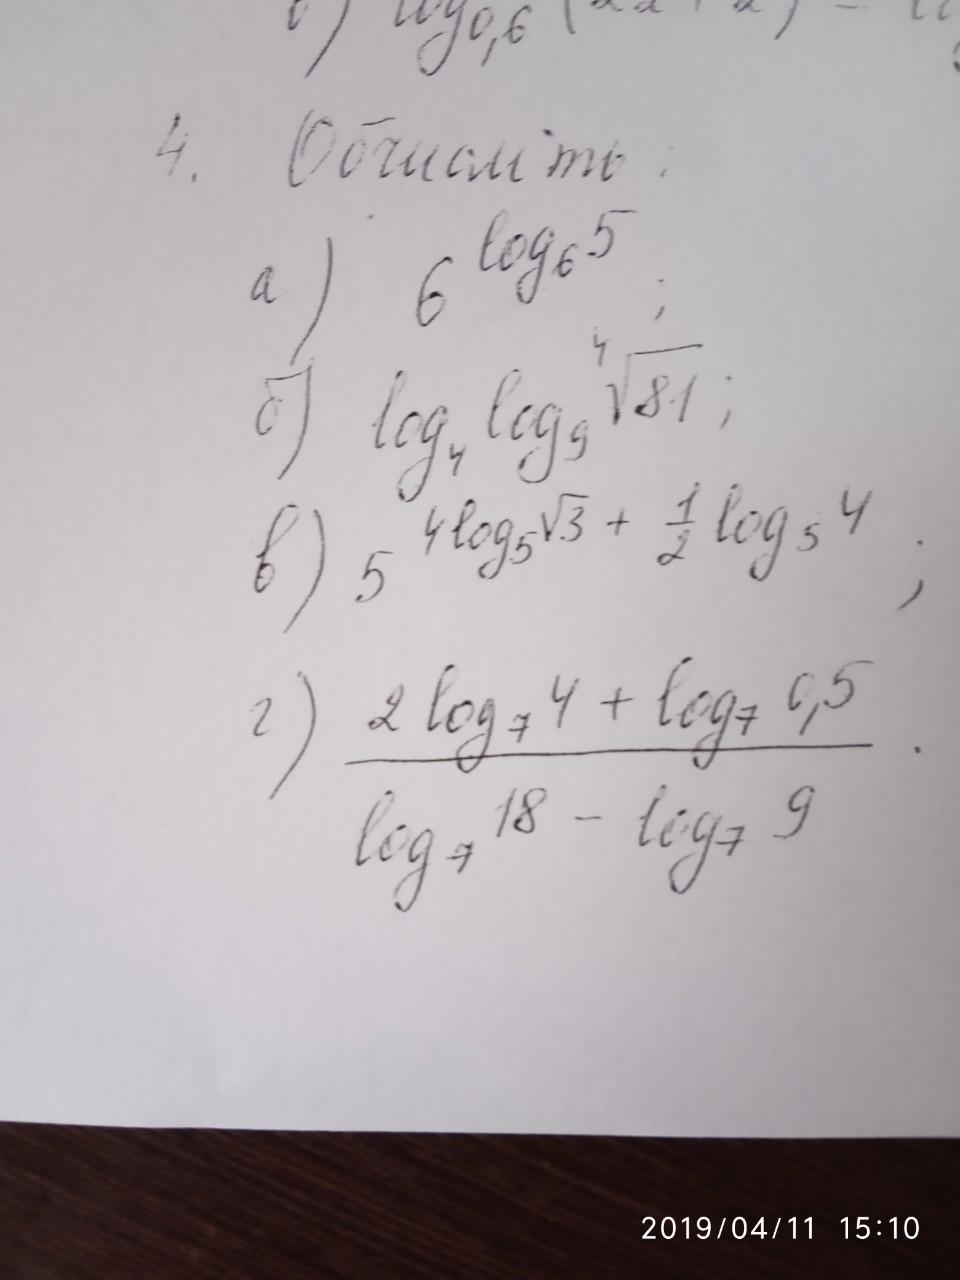 б) log₀,₆ (2x + 2) =
4. Обчисліть:
а) 6^(log₆5);
б) log₄ log₉ ⁴√81;
в) 5^(4log₅√3 + 1/2 log₅4);
г) (2 log₇ 4 + log₇ 0,5) / (log₇ 18 - log₇ 9).
2019/04/11 15:10